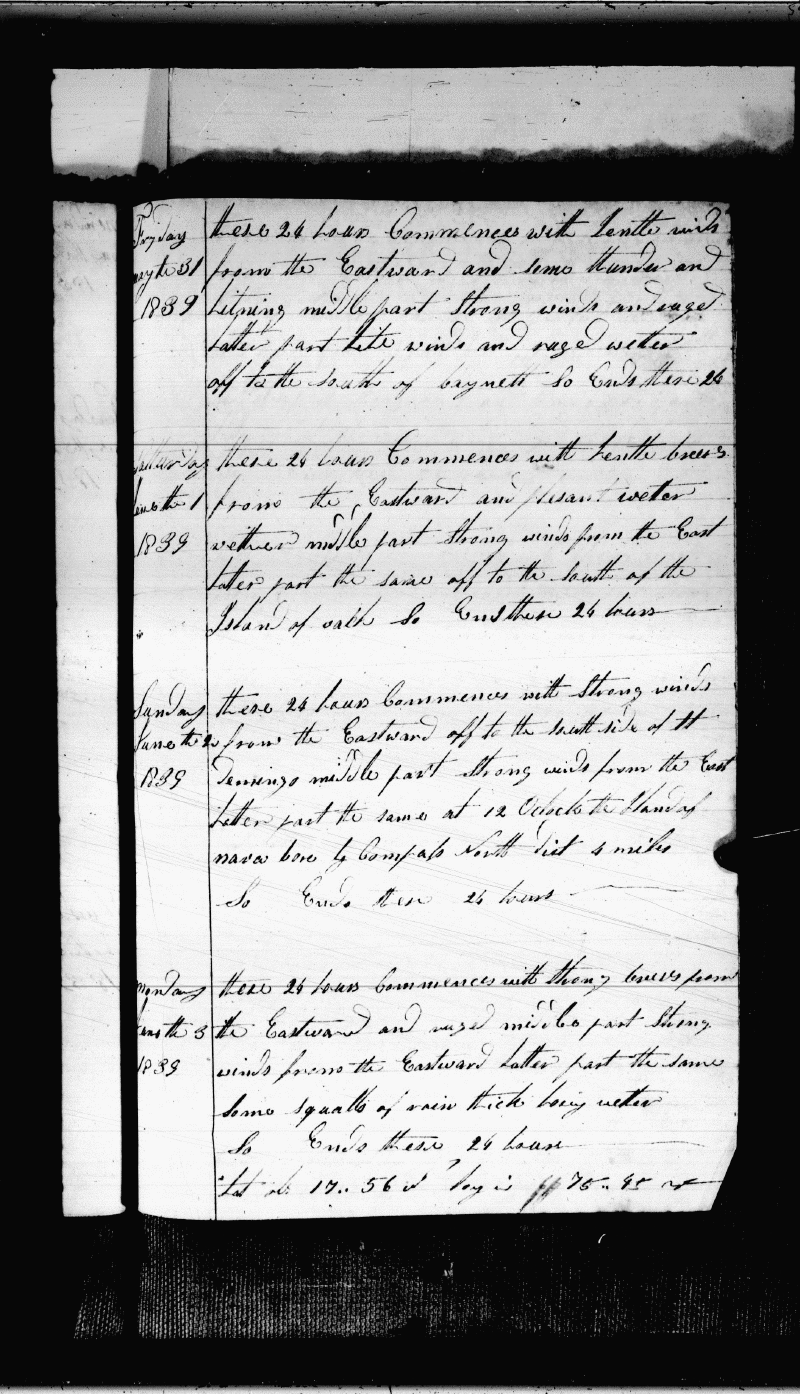 Fryday these 24 hours Commences with Lentle winds
may the 31 from the Eastward and some thunder and
1839 Litning middle part Strong winds and ruged
Latter part Lite winds and ruged weter
off to the South of So Ends these 24
Satturday these 24 hours Commences with Lentle brees
June the 1 from the Eastward and plesant weter
1839 wether middle part Strong winds from the East
Later part the same off to the South of the
Island of vach So Ends these 24 hours
Sunday these 24 hours Commences with Strong winds
June the 2 from the Eastward off to the South side of St
1839 Demingo middle part Strong winds from the East
Latter part the same at 12 Oclock the Iland of
nava bore by Compass North dist 4 miles
So Ends these 24 hours
monday these 24 hours Commences with Strong brees from
June the 3 the Eastward and ruged middle part Strong
1839 winds from the Eastward Latter part the same
Some squalls of rain thick weter
So Ends these 24 hours
Lat 17.. 56 75.. 45